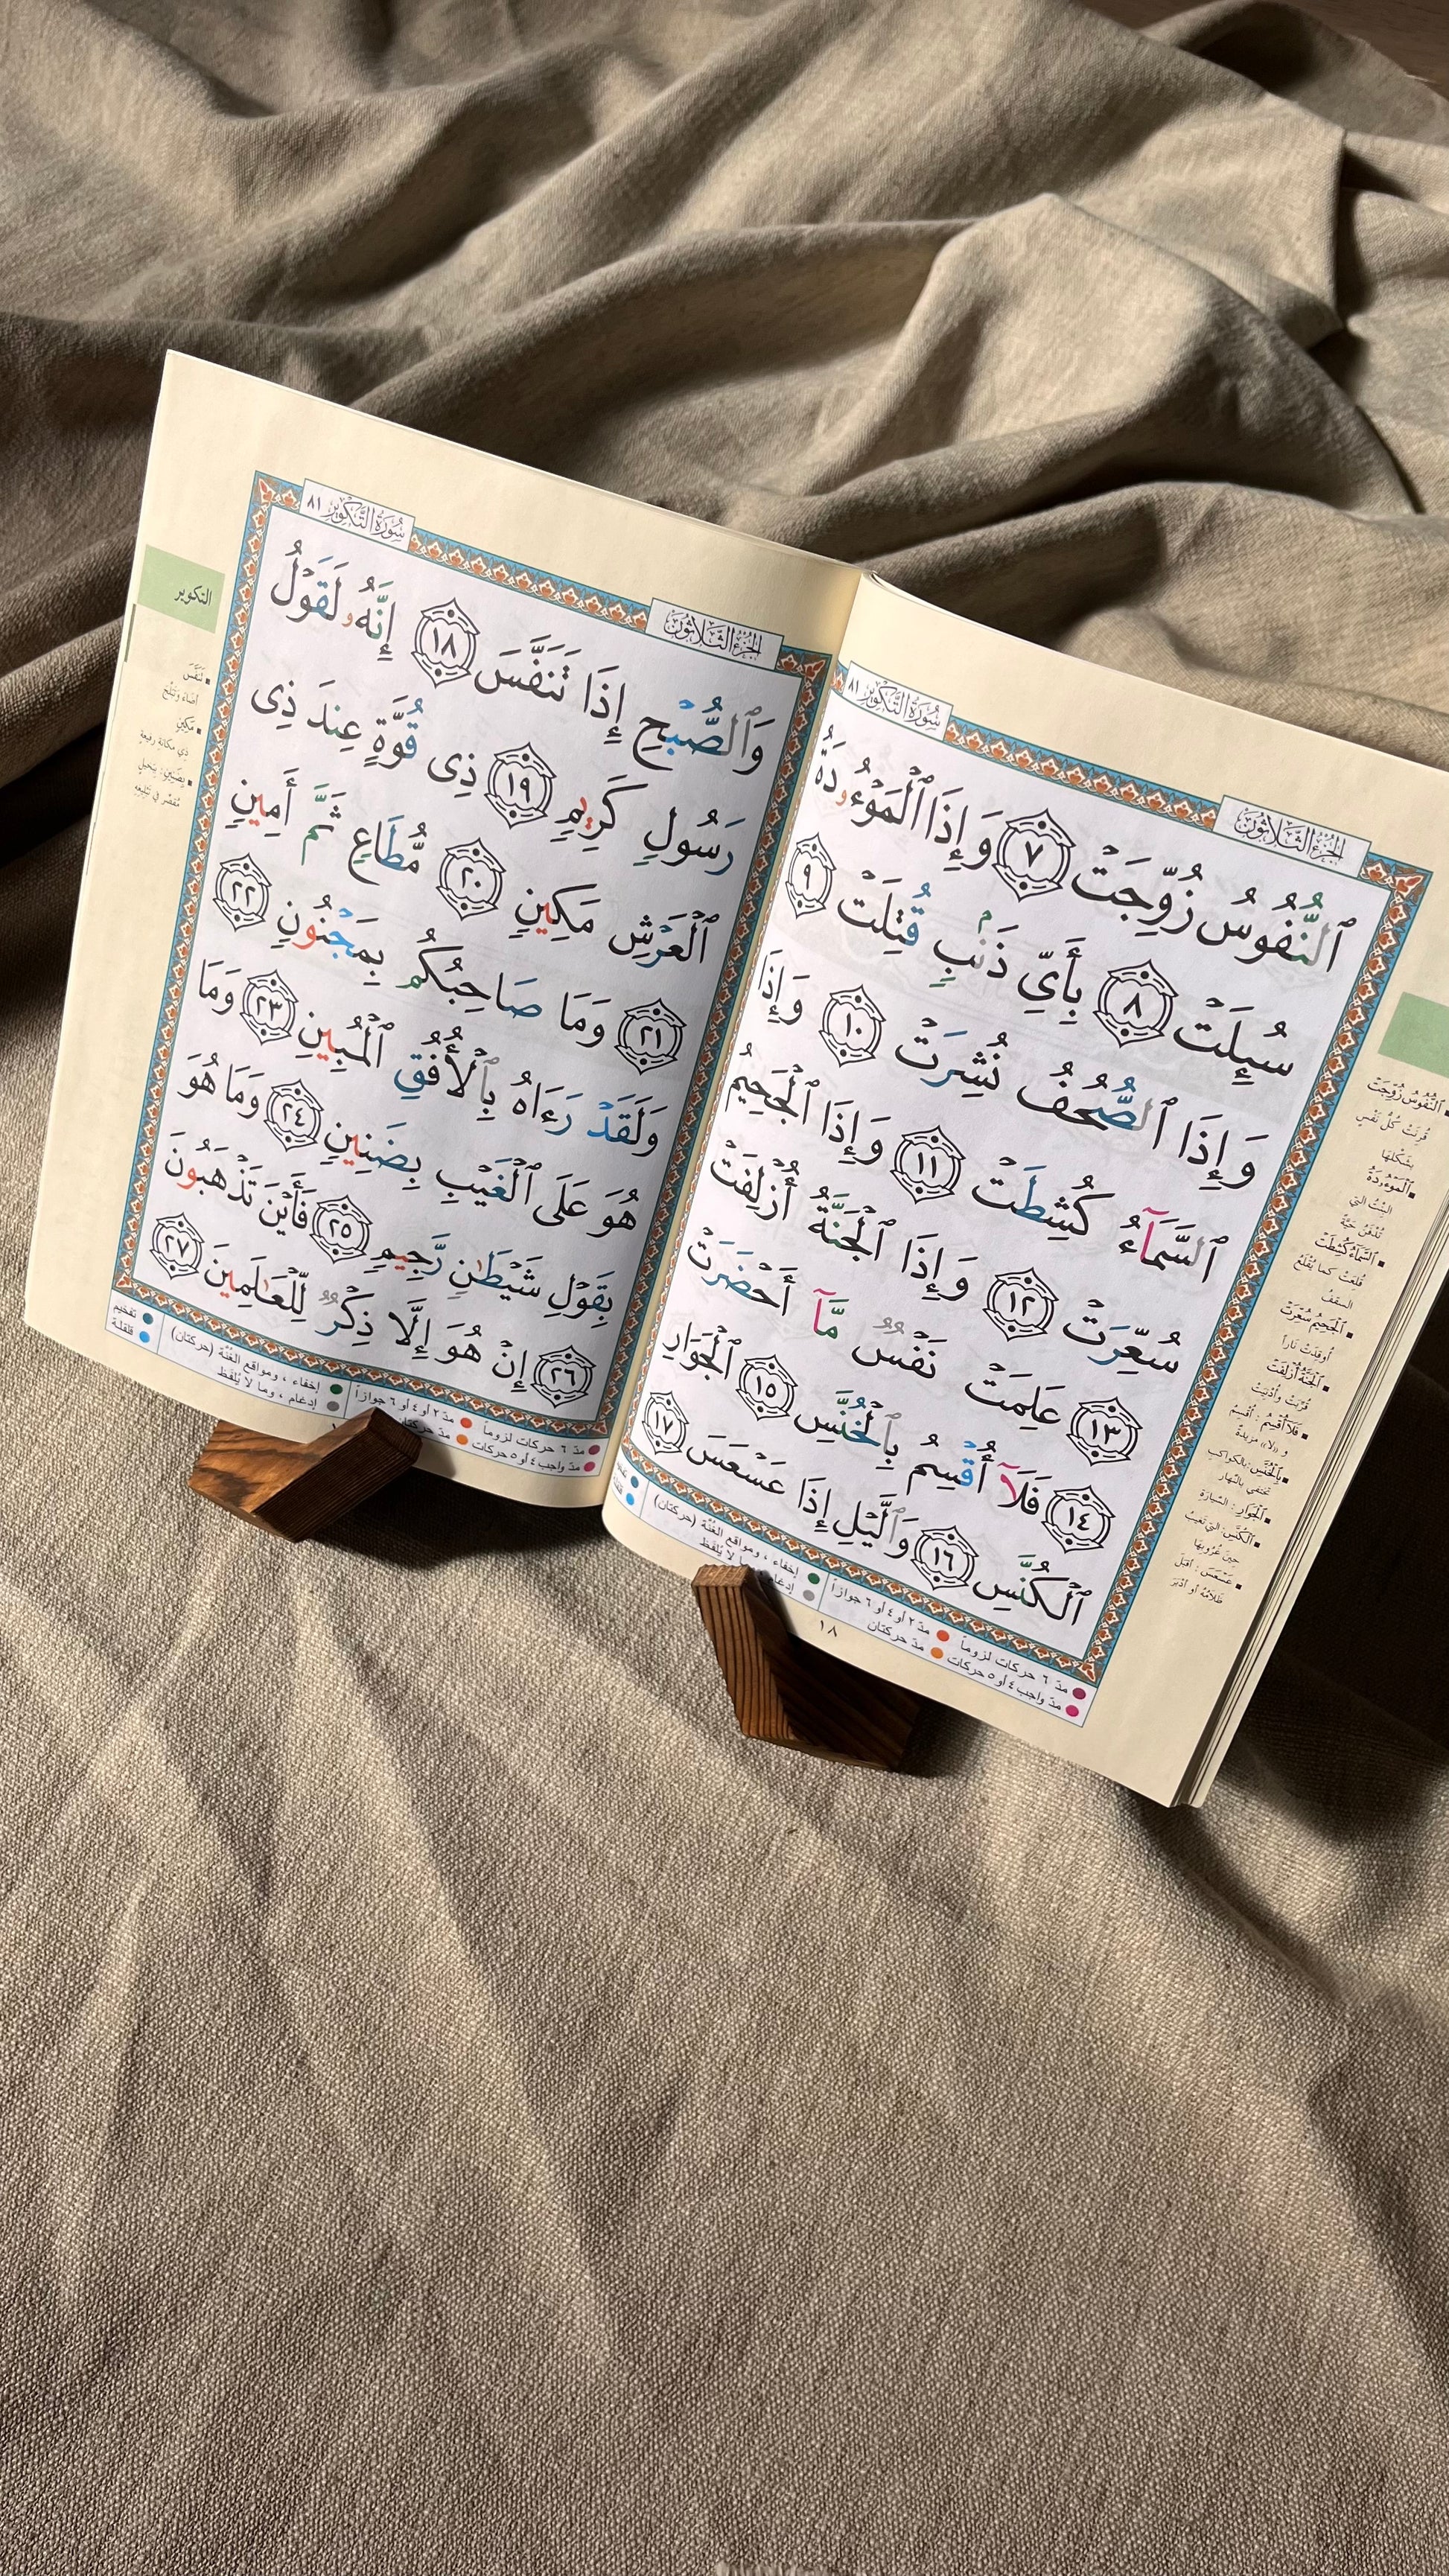 الجزء الثلاثون
سورة التكوير ٨١
ٱلنُّفُوسُ زُوِّجَتْ ٧ وَإِذَا ٱلْمَوْءُۥدَةُ
سُئِلَتْ ٨ بِأَىِّ ذَنۢبٍ قُتِلَتْ ٩
وَإِذَا ٱلصُّحُفُ نُشِرَتْ ١٠ وَإِذَا
ٱلسَّمَآءُ كُشِطَتْ ١١ وَإِذَا ٱلْجَحِيمُ
سُعِّرَتْ ١٢ وَإِذَا ٱلْجَنَّةُ أُزْلِفَتْ
١٣ عَلِمَتْ نَفْسٌ مَّآ أَحْضَرَتْ
١٤ فَلَآ أُقْسِمُ بِٱلْخُنَّسِ ١٥ ٱلْجَوَارِ
ٱلْكُنَّسِ ١٦ وَٱلَّيْلِ إِذَا عَسْعَسَ ١٧
ٱلنُّفُوسُ زُوِّجَتْ
قُرِنَتْ كُلُّ نَفْسٍ
بِشَكْلِهَا
ٱلْمَوْءُۥدَةُ
البِنْتُ التي
تُدْفَنُ حَيَّةً
ٱلسَّمَآءُ كُشِطَتْ
قُلِعَتْ كما يُقْلَعُ
السقفُ
ٱلْجَحِيمُ سُعِّرَتْ
أُوقِدَتْ نَاراً
ٱلْجَنَّةُ أُزْلِفَتْ
قُرِّبَتْ وأُدْنِيَتْ
فَلَآ أُقْسِمُ : أُقْسِمُ
و «لا» مزيدةٌ
بِٱلْخُنَّسِ بالكواكب
تختفي بالنهار
ٱلْجَوَارِ : السَّيارَة
ٱلْكُنَّسِ: التي تَغيبُ
حِينَ غُرُوبِهَا
عَسْعَسَ : أقبَلَ
ظَلَامُهُ أو أدْبَرَ
مدّ ٦ حركات لزوماً مدّ ٢ أو ٤ أو ٦ جوازاً إخفاء ، ومواقع الغُنَّة (حركتان)
مدّ واجب ٤ أو ٥ حركات مدّ حركتان لا يُلفَظ
١٨
الجزء الثلاثون
سورة التكوير ٨١
وَٱلصُّبْحِ إِذَا تَنَفَّسَ ١٨ إِنَّهُۥ لَقَوْلُ
رَسُولٍ كَرِيمٍ ١٩ ذِى قُوَّةٍ عِندَ ذِى
ٱلْعَرْشِ مَكِينٍ ٢٠ مُّطَاعٍ ثَمَّ أَمِينٍ
٢١ وَمَا صَاحِبُكُم بِمَجْنُونٍ ٢٢
وَلَقَدْ رَءَاهُ بِٱلْأُفُقِ ٱلْمُبِينِ ٢٣ وَمَا
هُوَ عَلَى ٱلْغَيْبِ بِضَنِينٍ ٢٤ وَمَا هُوَ
بِقَوْلِ شَيْطَٰنٍ رَّجِيمٍ ٢٥ فَأَيْنَ تَذْهَبُونَ
٢٦ إِنْ هُوَ إِلَّا ذِكْرٌ لِّلْعَٰلَمِينَ ٢٧
التكوير
تَنَفَّسَ
أضاء وتبلّج
مَكِينٍ
ذي مكانة رفيعة
بِضَنِينٍ: ببخيلٍ
مُقصّرٍ في تبليغه
مدّ ٦ حركات لزوماً مدّ ٢ أو ٤ أو ٦ جوازاً إخفاء ، ومواقع الغُنَّة (حركتان) تفخيم
مدّ واجب ٤ أو ٥ حركات مدّ حركتان إدغام ، وما لا يُلفَظ قلقلة